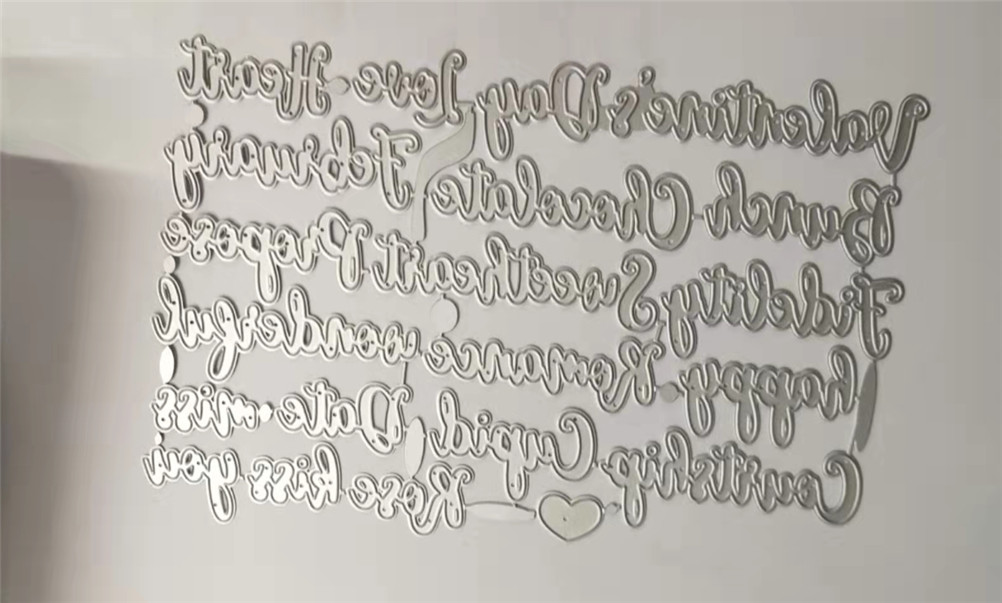 Valentine's Day Love Heart
Bunch Chocolate February
Fidelity Sweetheart Propose
happy Romance wonderful
Courtship Cupid Date miss
Rose kiss you